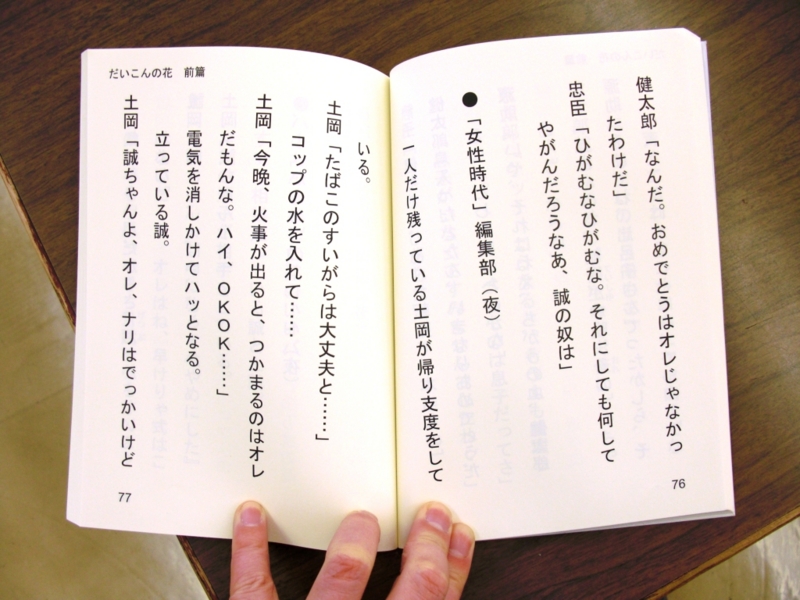 健太郎「なんだ。おめでとうはオレじゃなかっ
たわけだ」
忠臣「ひがむなひがむな。それにしても何して
やがんだろうなあ、誠の奴は」
●「女性時代」編集部(夜)
一人だけ残っている土岡が帰り支度をして
76
だいこんの花 前篇
いる。
土岡「たばこのすいがらは大丈夫と……」
コップの水を入れて……
土岡「今晩、火事が出ると、つかまるのはオレ
だもんな。ハイ、OKOK……」
電気を消しかけてハッとなる。
立っている誠。
土岡「誠ちゃんよ、オレ、ナリはでっかいけど
77